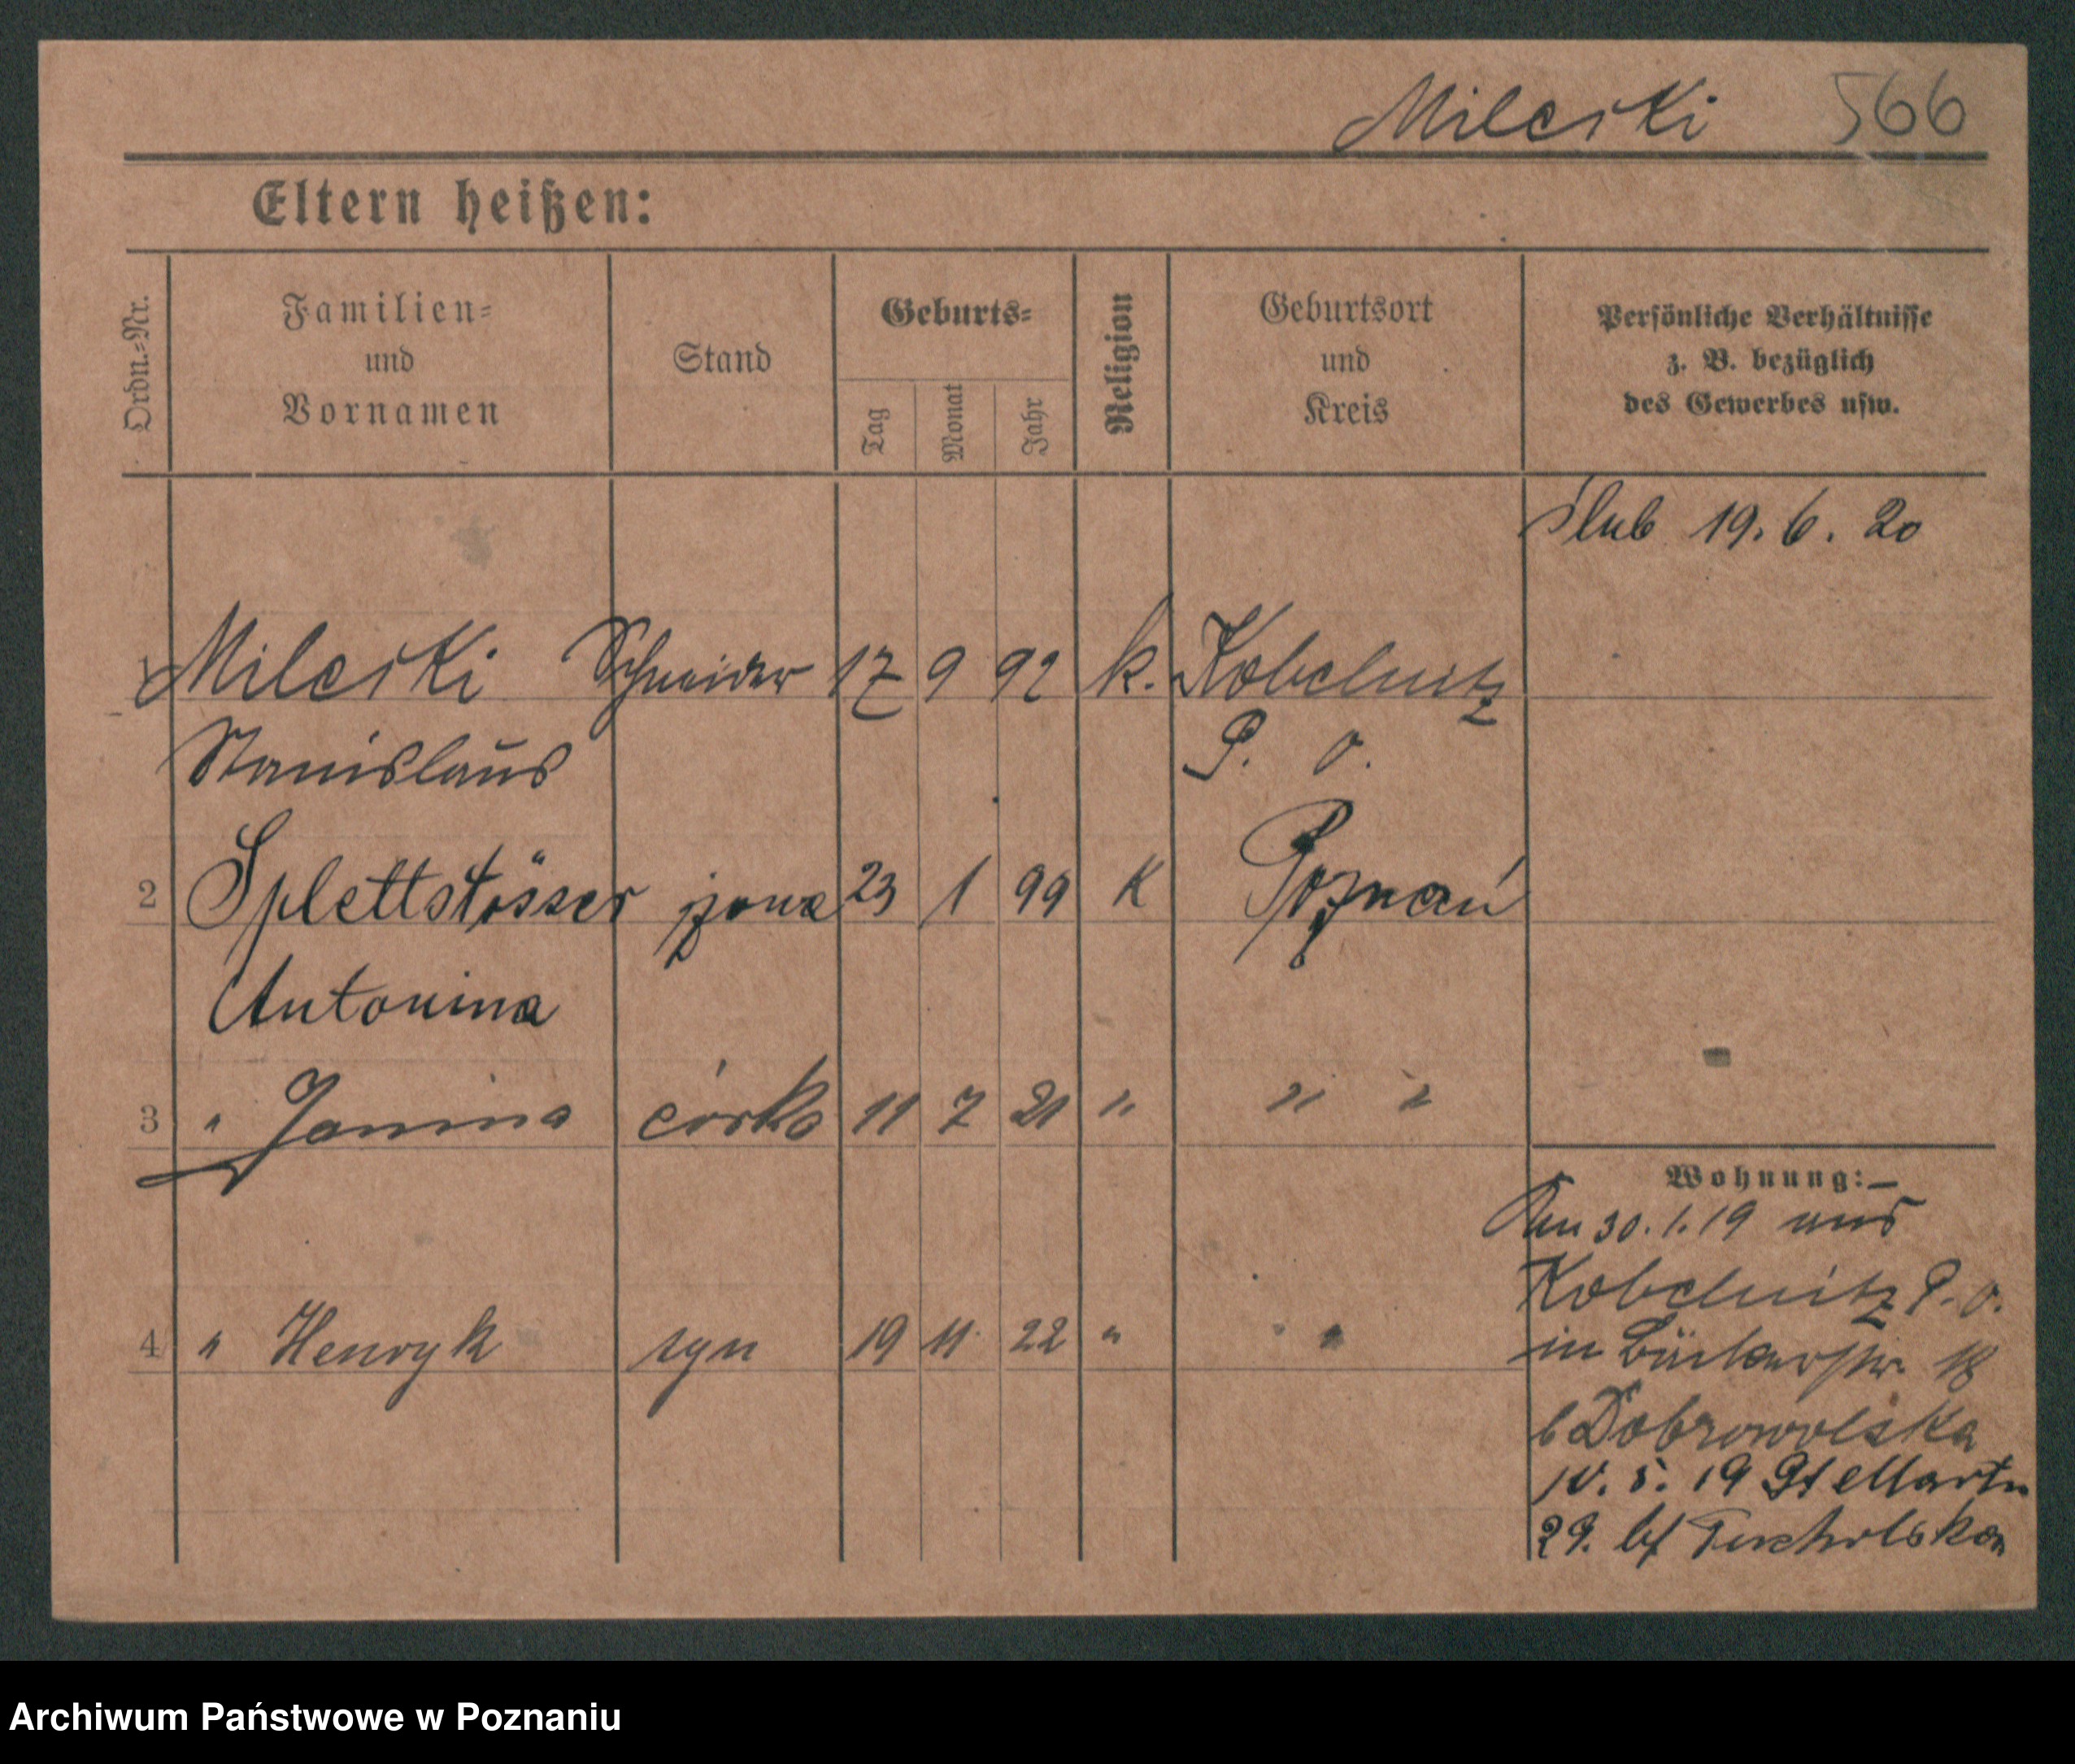 Milcski 566
Eltern heißen:
Ordn.=Nr.
Familien=
und
Vornamen
Stand
Geburts=
Tag
Monat
Jahr
Religion
Geburtsort
und
Kreis
Persönliche Verhältnisse
z. B. bezüglich
des Gewerbes usw.
ślub 19. 6. 20
1 Milcski Schneider 17 9 92 k. Kobelnitz
Stanislaus P. O.
2 Splettstösser żona 23 1 99 K Poznań
Antonina
3 " Janina córka 11 7 21 " " "
Wohnung:
30. 1. 19 aus
Kobelnitz P. O.
4 " Henryk syn 19 11 22 " " "
in Bäckerstr. 18
b Dobrowolska
10. 5. 19 St Martin
29. bf
Archiwum Państwowe w Poznaniu